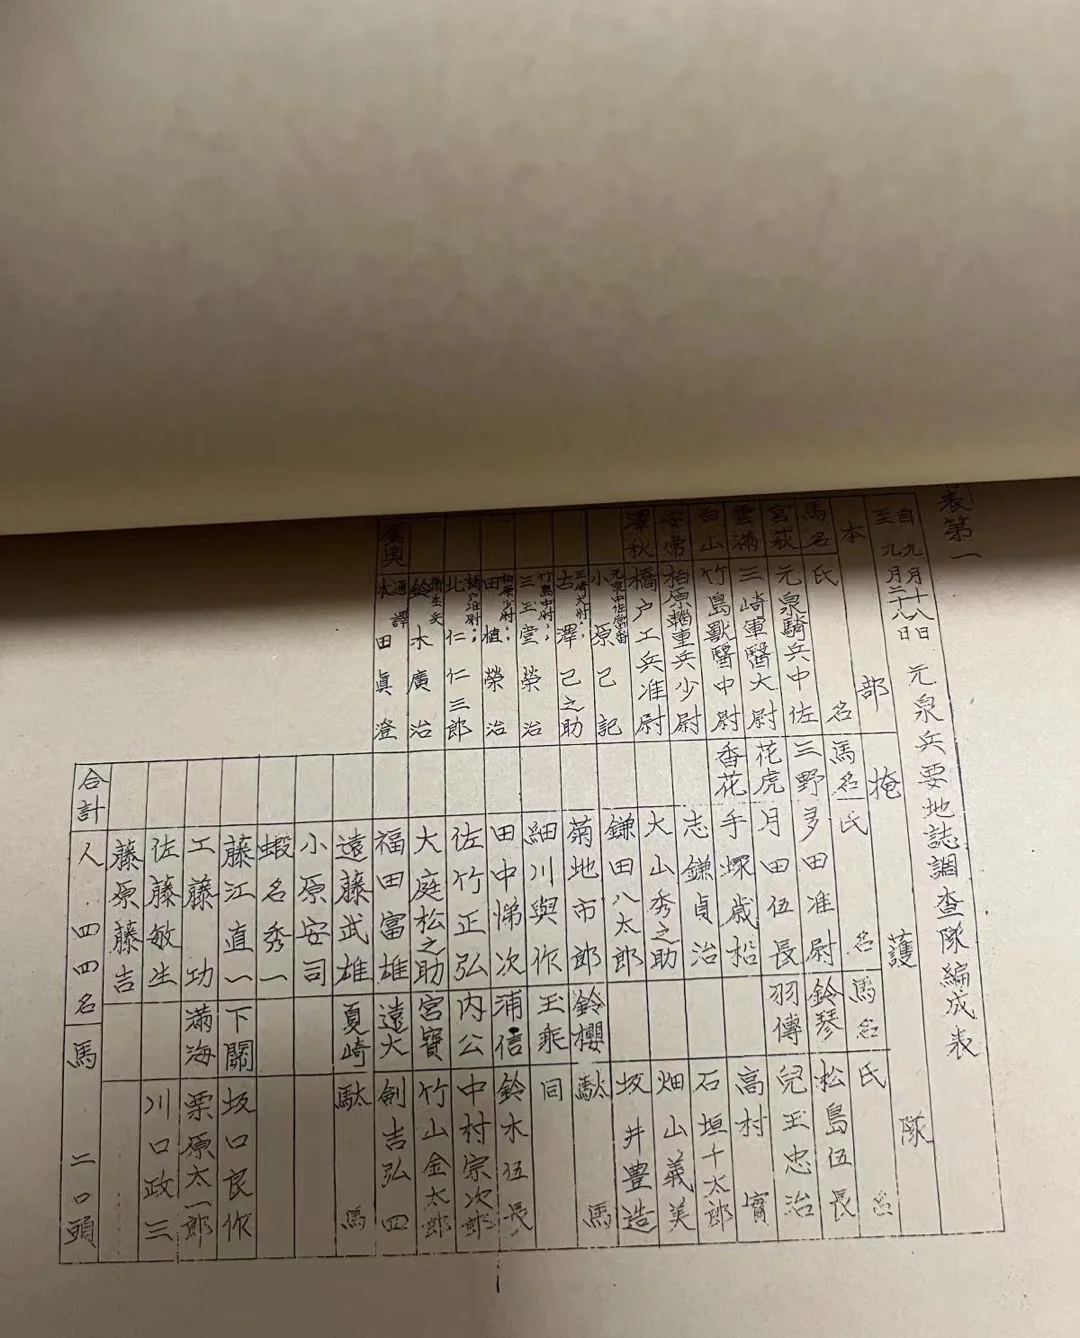 表第一
自 九月十八日
至 九月二十八日
元泉兵要地誌調査隊編成表
本部
掩護隊
馬名 氏名 馬名 氏名 馬名 氏名
宮萩 元泉騎兵中佐 三野 多田准尉 鈴琴 松島伍長
雲満 三崎軍醫大尉 花虎 月田伍長 羽傳 兒玉忠治
白山 竹島獸醫中尉 香花 手塚歳松 高村實
安常 柏原輜重兵少尉 志鎌貞治 石垣十太郎
澤秋 橋戸工兵准尉 大山秀之助 畑山義美
元泉中佐當番 小原己記 鎌田八太郎 坂井豊造
三崎大尉〃 古澤己之助 菊地市郎 鈴櫻 駄馬
竹島中尉〃 三玉堂榮治 細川與作 玉乘 同
柏原少尉〃 田植榮治 田中悌次 浦信 鈴木伍長
橋戸准尉〃 北仁仁三郎 佐竹正弘 内公 中村宗次郎
衛生兵 鈴木廣治 大庭松之助 宮寶 竹山金太郎
通譯 本田眞澄 福田富雄 遠大 劍吉弘四
遠藤武雄 夏崎 駄馬
小原安司
蝦名秀一
藤江直一 下關 坂口良作
工藤功 満海 栗原太一郎
佐藤敏生 川口政三
藤原藤吉
合計 人 四四名 馬 二口頭